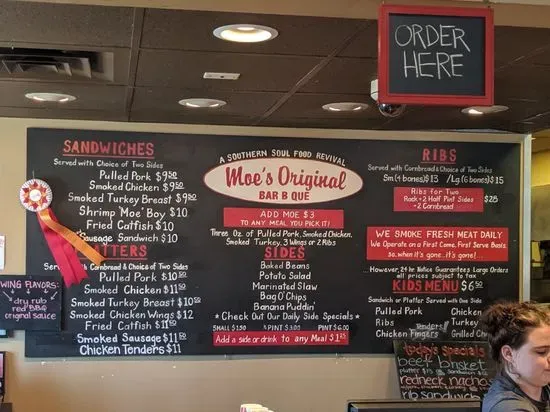 ORDER
HERE
SANDWICHES
Served with Choice of Two Sides
Pulled Pork $9.50
Smoked Chicken $9.50
Smoked Turkey Breast $9.50
Shrimp 'Moe' Boy $10
Fried Catfish $10
Sausage Sandwich $10
TTERS
with Cornbread & Choice of Two Sides
Pulled Pork $10.50
Smoked Chicken $11.50
Smoked Turkey Breast $10.50
Smoked Chicken Wings $12
Fried Catfish $11.50
Smoked Sausage $11.50
Chicken Tenders $11
WING FLAVORS:
dry rub
red BBQ
original sauce
A SOUTHERN SOUL FOOD REVIVAL
Moe's Original
BAR B QUE
ADD MOE $3
TO ANY MEAL YOU PICK IT!
Three Oz. of Pulled Pork, Smoked Chicken,
Smoked Turkey, 3 Wings or 2 Ribs
SIDES
Baked Beans
Potato Salad
Marinated Slaw
Bag O' Chips
Banana Puddin'
* Check Out Our Daily Side Specials *
SMALL $1.90 ½ PINT $3.00 PINT $6.00
Add a side or drink to any Meal $1.25
RIBS
Served with Cornbread & Choice of Two Sides
Sm. (4 bones) $13 / Lg (6 bones) $15
Ribs for Two
Rack + 2 Half Pint Sides
+ 2 Cornbread
$28
WE SMOKE FRESH MEAT DAILY
We Operate on a First Come, First Serve Basis,
so, when it's gone...it's gone!...
However, 24 hr. Notice Guarantees Large Orders
all prices subject to tax
KIDS MENU $6.50
Sandwich or Platter Served with One Side
Pulled Pork
Chicken
Ribs
Turkey
Chicken Fingers
Tenders
Grilled
Today's Specials
beef brisket
redneck nachos
rib sandwich